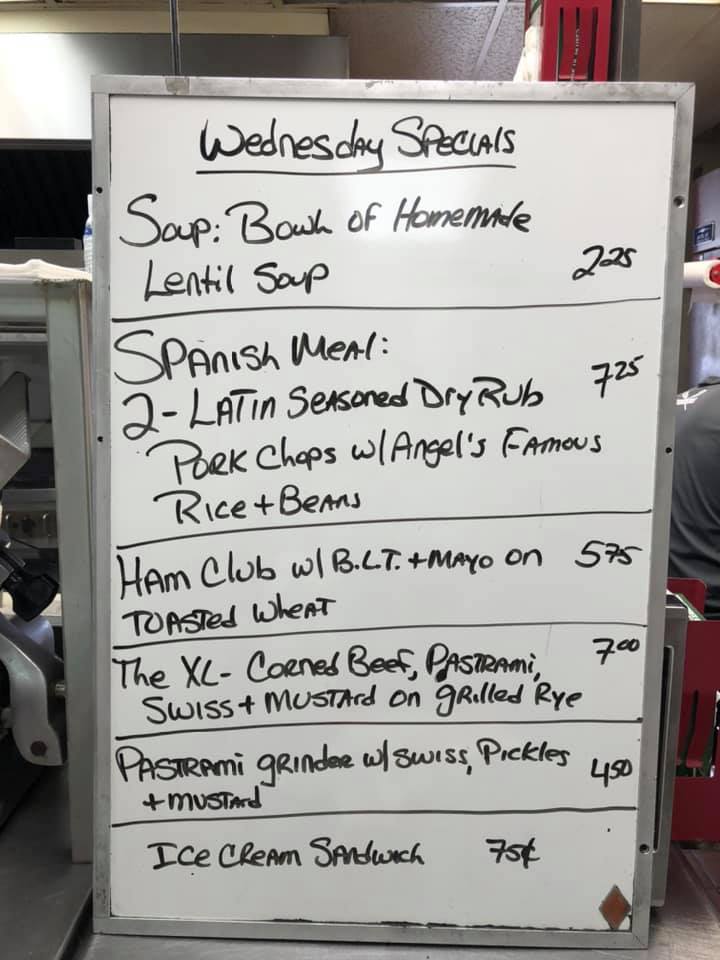 Wednesday Specials
Soup: Bowl of Homemade
Lentil Soup 2.25
Spanish Meal:
2- Latin Seasoned Dry Rub 7.25
Pork Chops w/ Angel's Famous
Rice + Beans
Ham Club w/ B.L.T. + Mayo on 5.75
Toasted Wheat
The XL- Corned Beef, Pastrami, 7.00
Swiss + Mustard on grilled Rye
Pastrami grinder w/ Swiss, Pickles 4.50
+ mustard
Ice Cream Sandwich 75¢